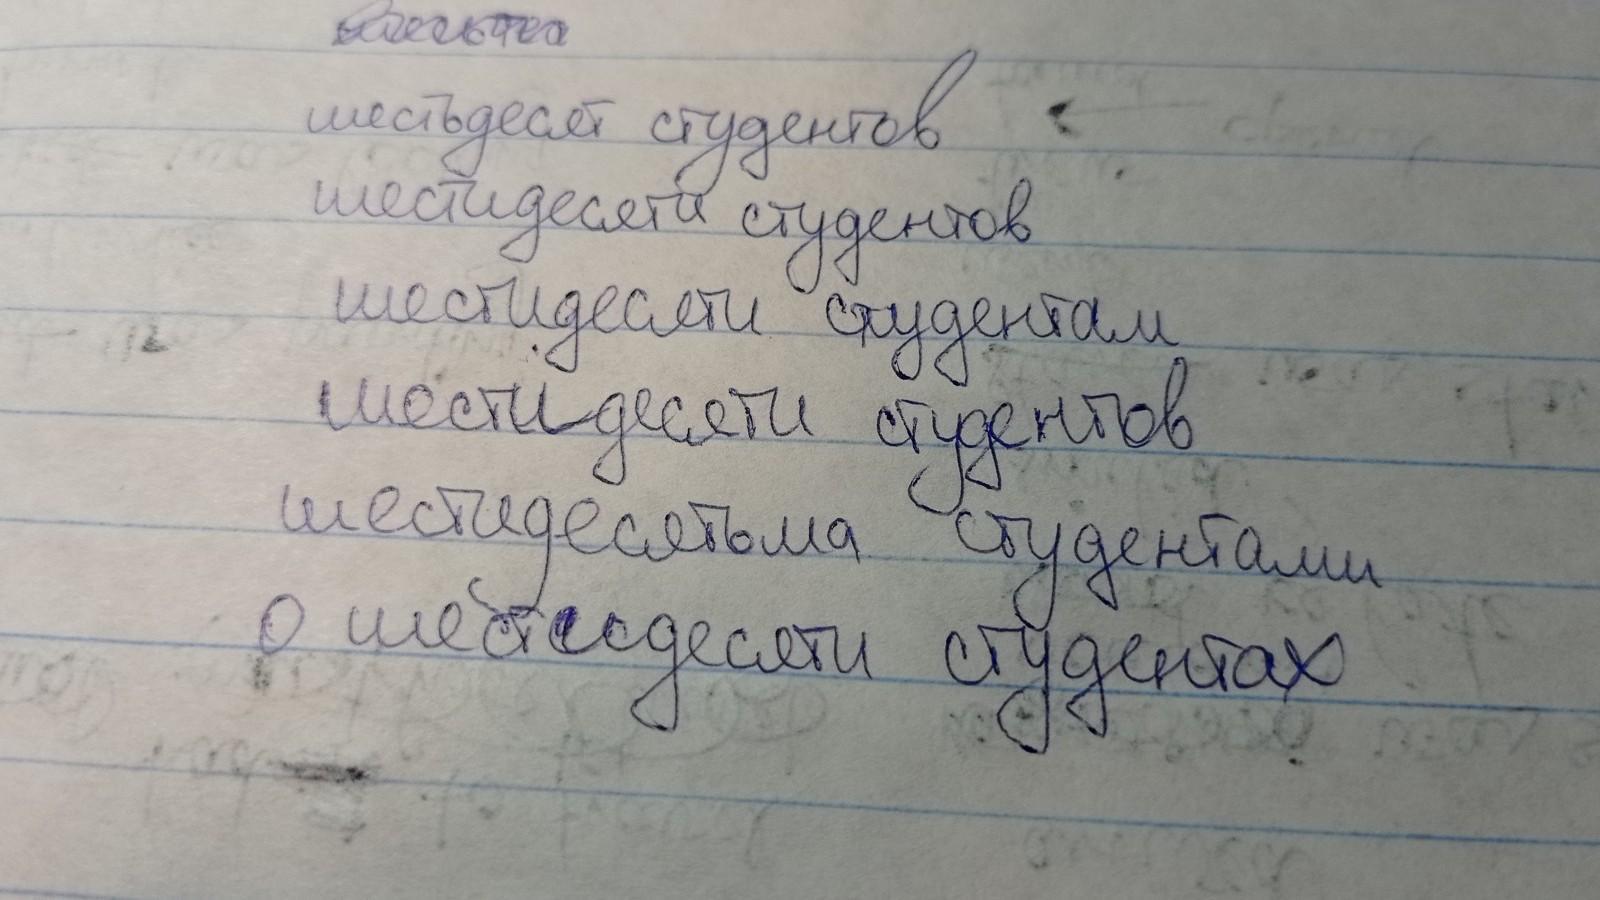 шестьдесят студентов
шестидесяти студентов
шестидесяти студентам
шестидесяти студентов
шестидесятьма студентами
о шестидесяти студентах